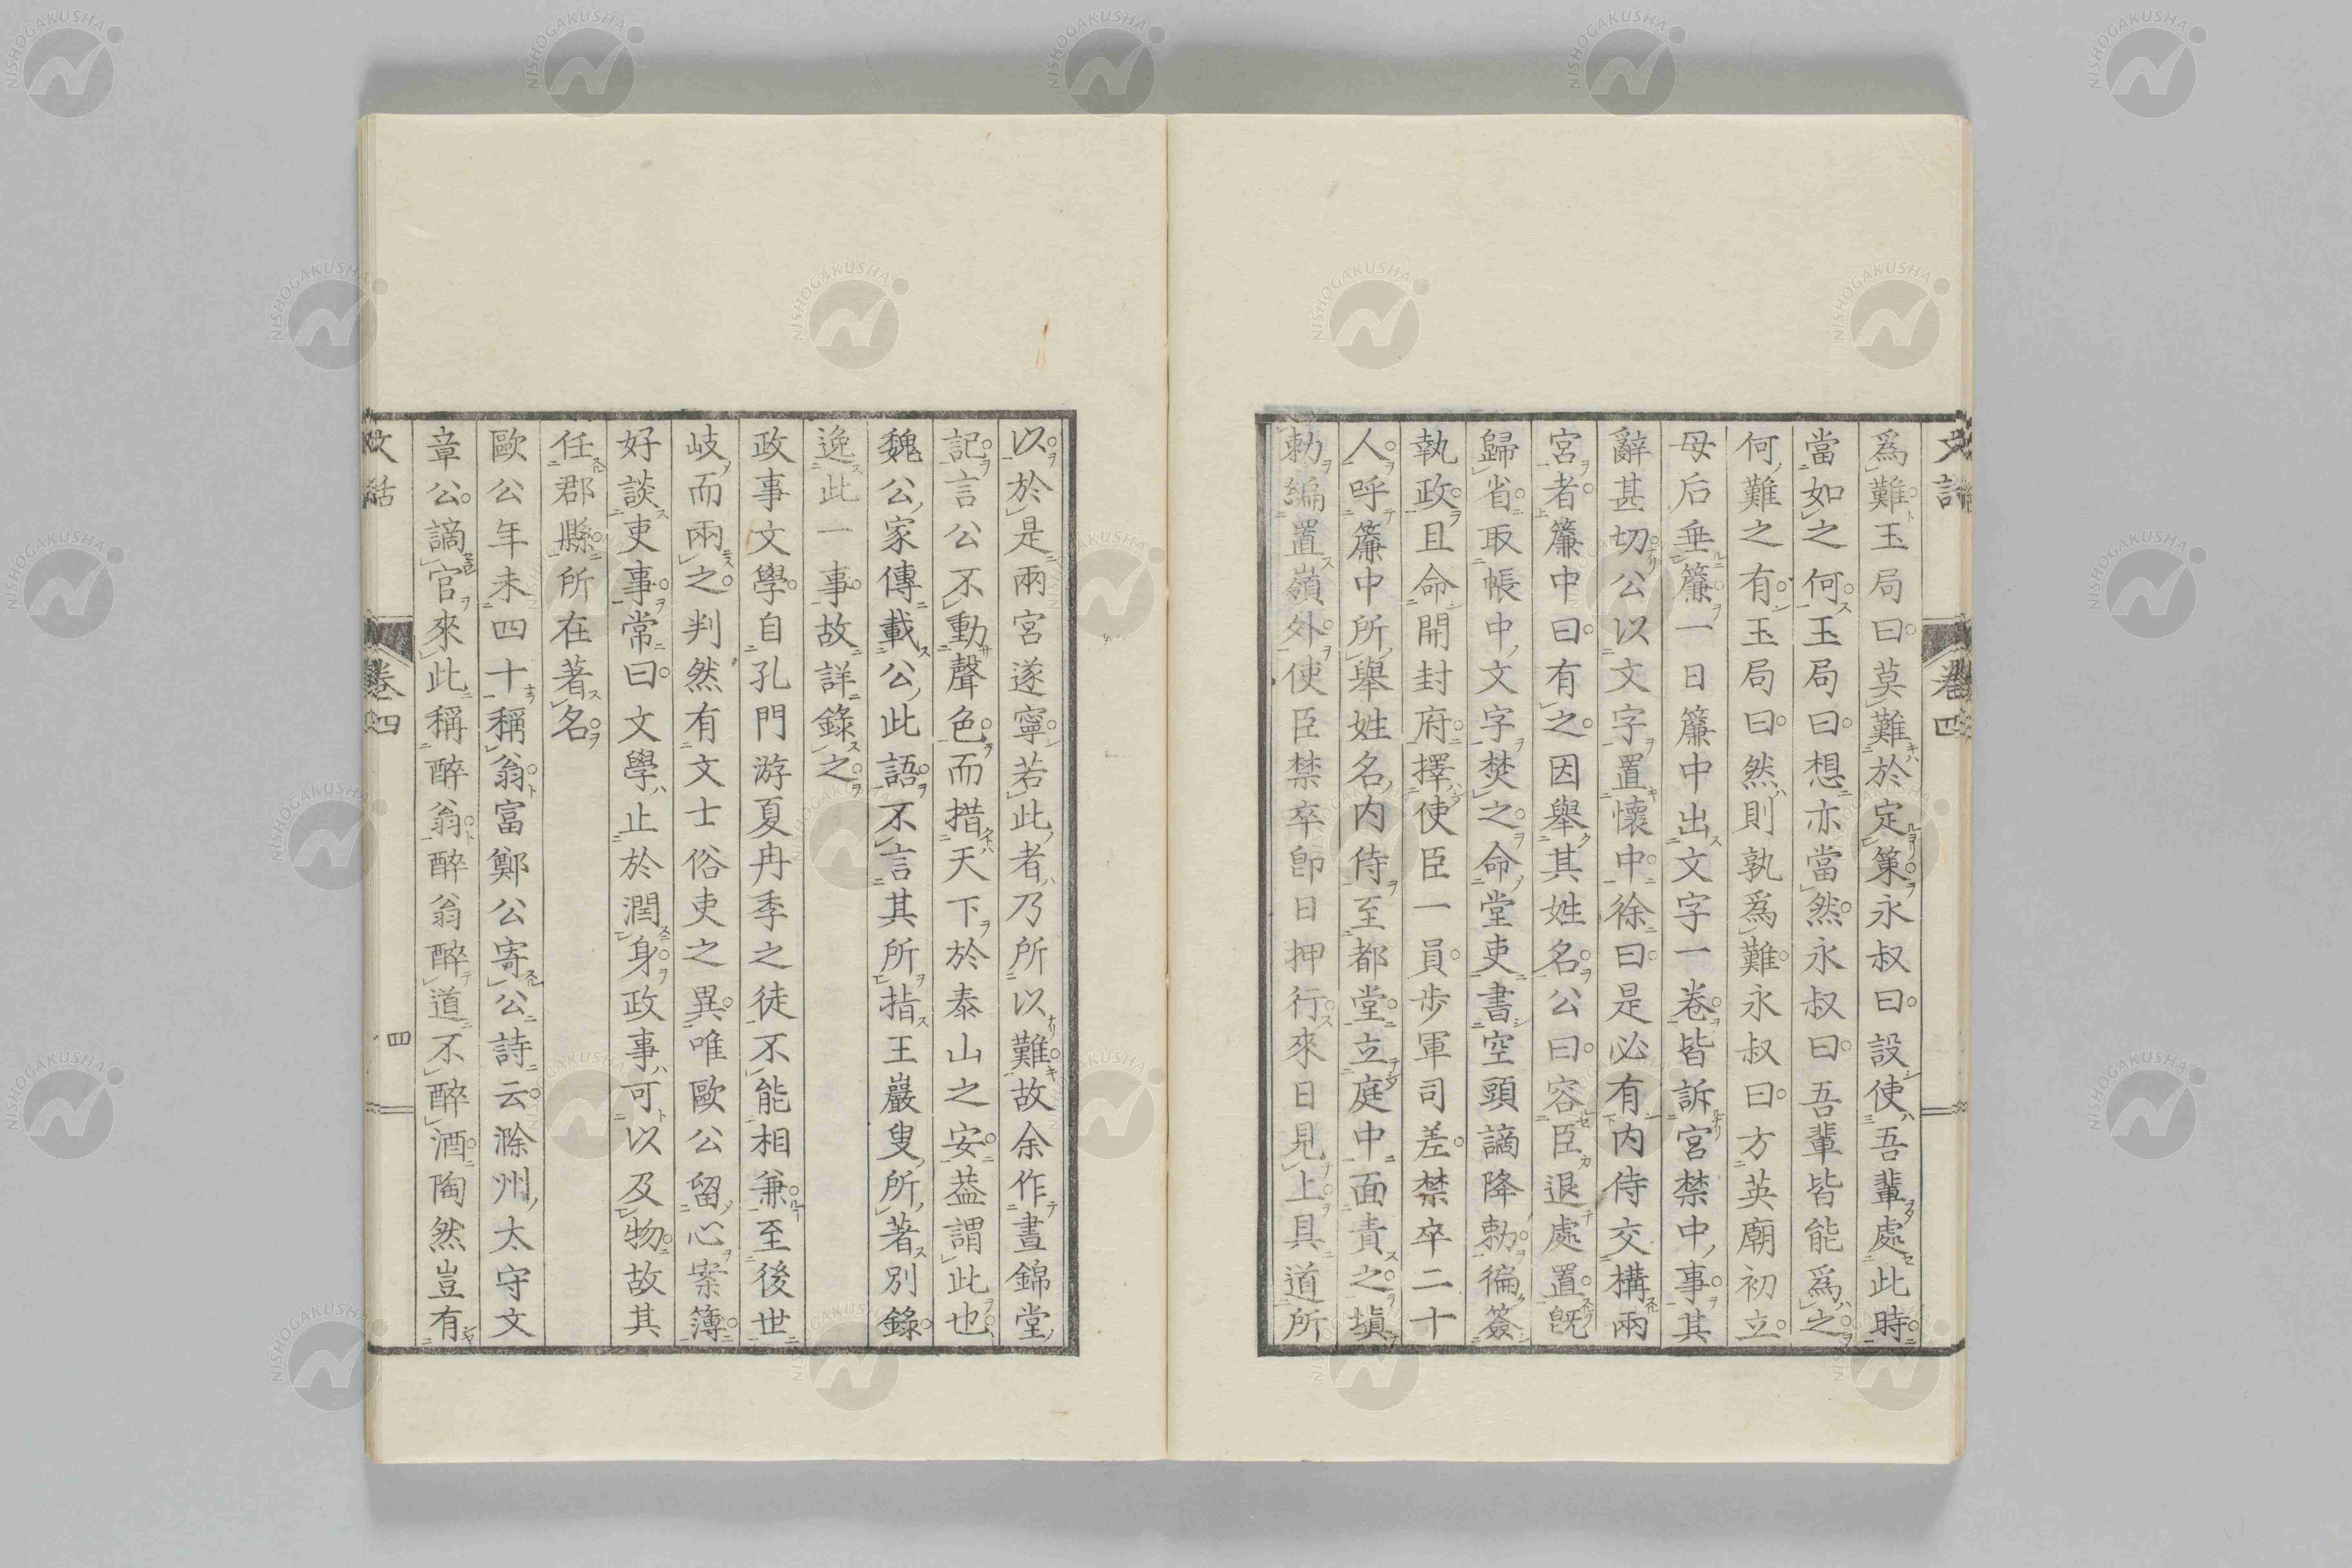 文話
卷四
爲難玉局曰莫難於定策永叔曰設使吾輩處此時
當如之何玉局曰想亦當然永叔曰吾輩皆能爲之
何難之有玉局曰然則孰爲難永叔曰方英廟初立
母后垂簾一日簾中出文字一卷皆訴宮禁中事其
辭甚切公以文字置懷中徐曰是必有内侍交構兩
宮者簾中曰有之因舉其姓名公曰容臣退處置既
歸省取帳中文字焚之命堂吏書空頭謫降勅徧簽
執政且命開封府擇使臣一員步軍司差禁卒二十
人呼簾中所舉姓名内侍至都堂立庭中面責之塡
勅編置嶺外使臣禁卒卽日押行來日見上具道所
以於是兩宮遂寧若此者乃所以難故余作晝錦堂
記言公不動聲色而措天下於泰山之安葢謂此也
魏公家傳載公此語不言其所指王巖叟所著別錄
逸此一事故詳錄之
政事文學自孔門游夏冉季之徒不能相兼至後世
岐而兩之判然有文士俗吏之異唯歐公留心案簿
好談吏事常曰文學止於潤身政事可以及物故其
任郡縣所在著名
歐公年未四十稱翁富鄭公寄公詩云滁州太守文
章公謫官來此稱醉翁醉翁醉道不醉酒陶然豈有
文話
卷四
四
NISHOGAKUSHA